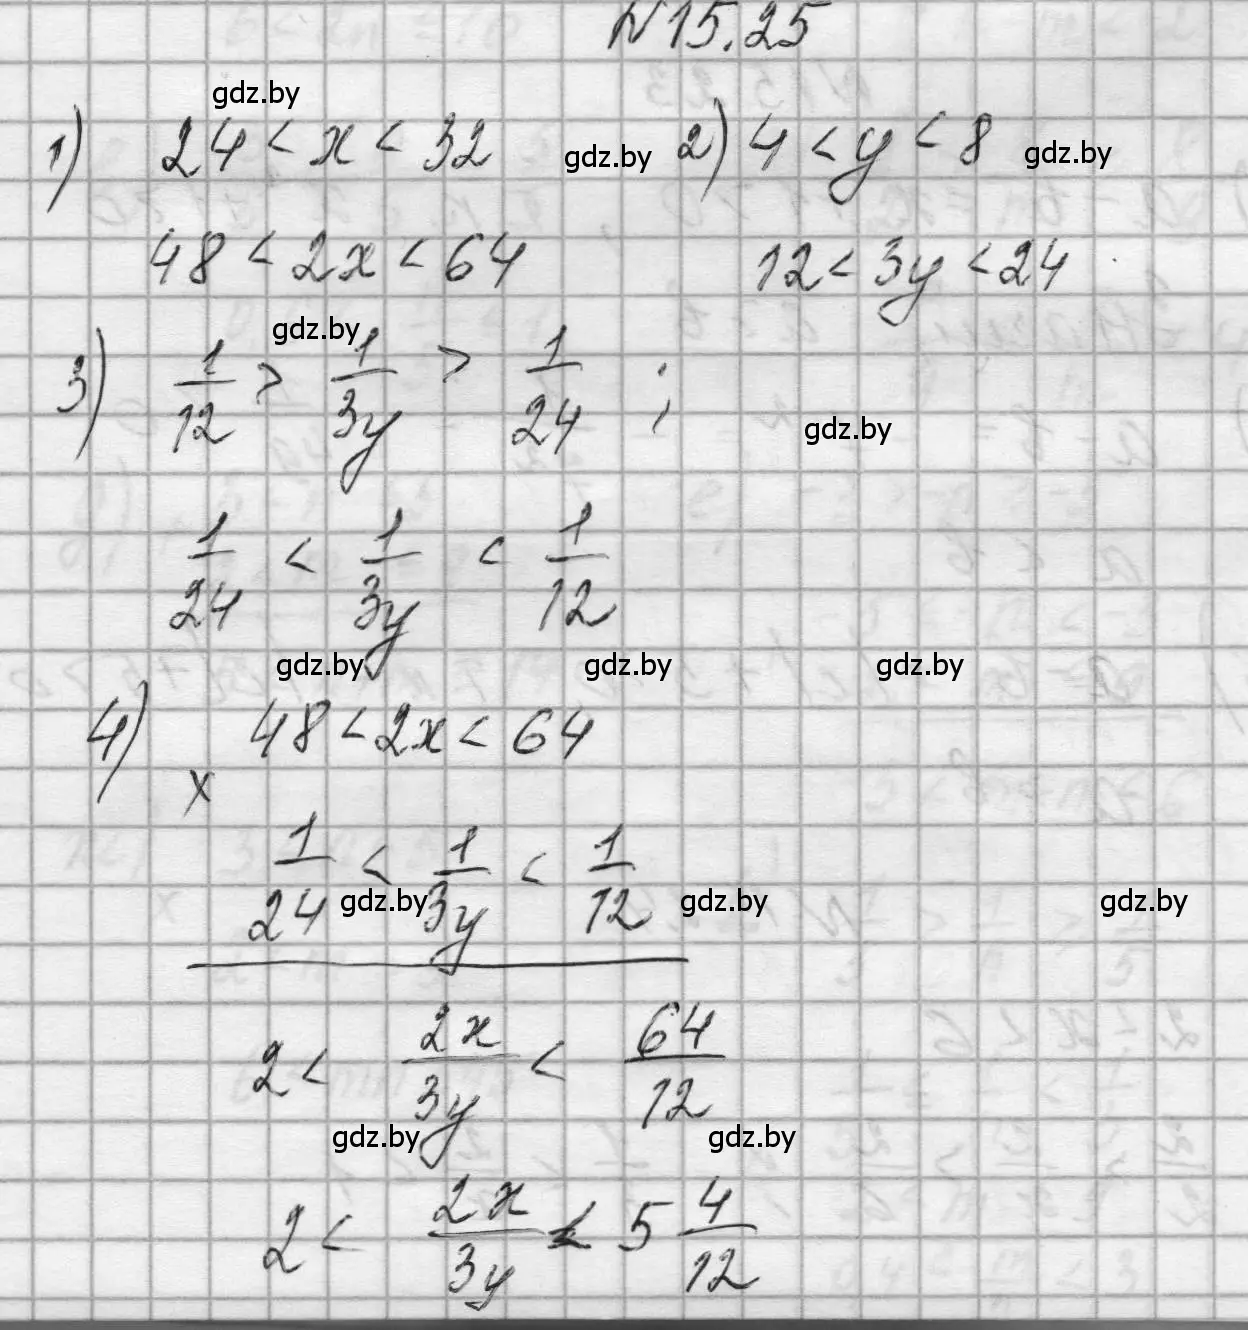 N 15.25
gdz.by
1) 24 < x < 32 gdz.by 2) 4 < y < 8 gdz.by
48 < 2x < 64 12 < 3y < 24
gdz.by
3) 1/12 > 1/3y > 1/24 ; gdz.by
1/24 < 1/3y < 1/12
gdz.by gdz.by gdz.by
4) 48 < 2x < 64
x
1/24 < 1/3y < 1/12
gdz.by gdz.by gdz.by
2 < 2x/3y < 64/12
gdz.by gdz.by
2 < 2x/3y < 5 4/12